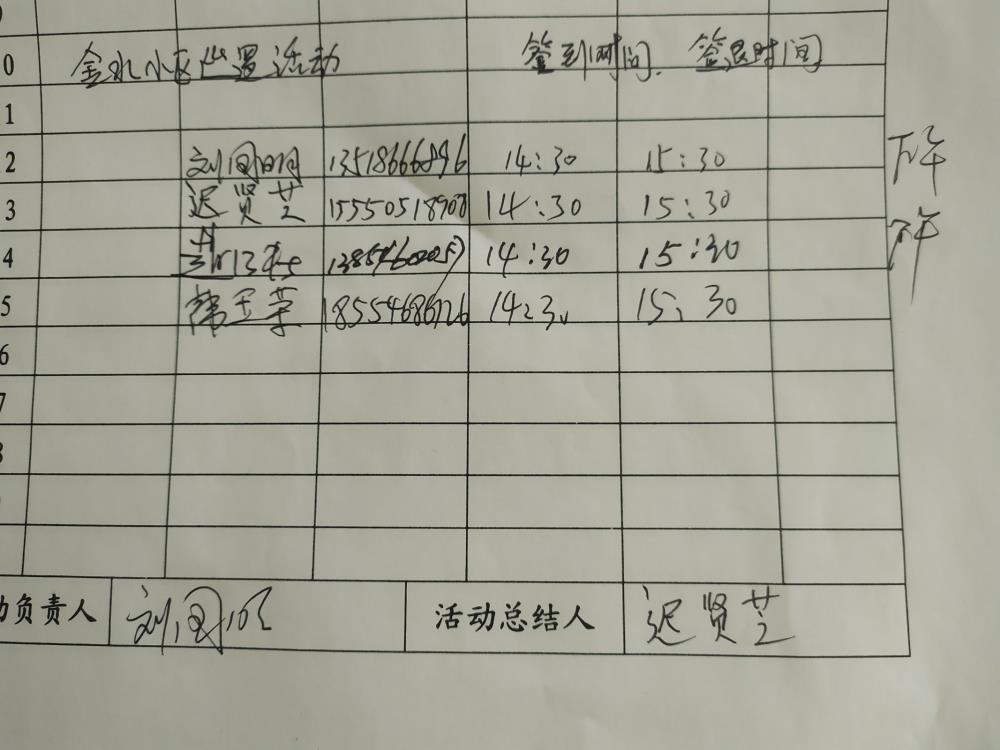 0 金水小区 活动 签到时间、签退时间
1
2 刘同明 13518666896 14:30 15:30 下午
3 迟贤芝 15550518908 14:30 15:30
4 14:30 15:30
5 韩玉荣 18554686726 14:30 15:30
6
7
负责人 刘同明 活动总结人 迟贤芝